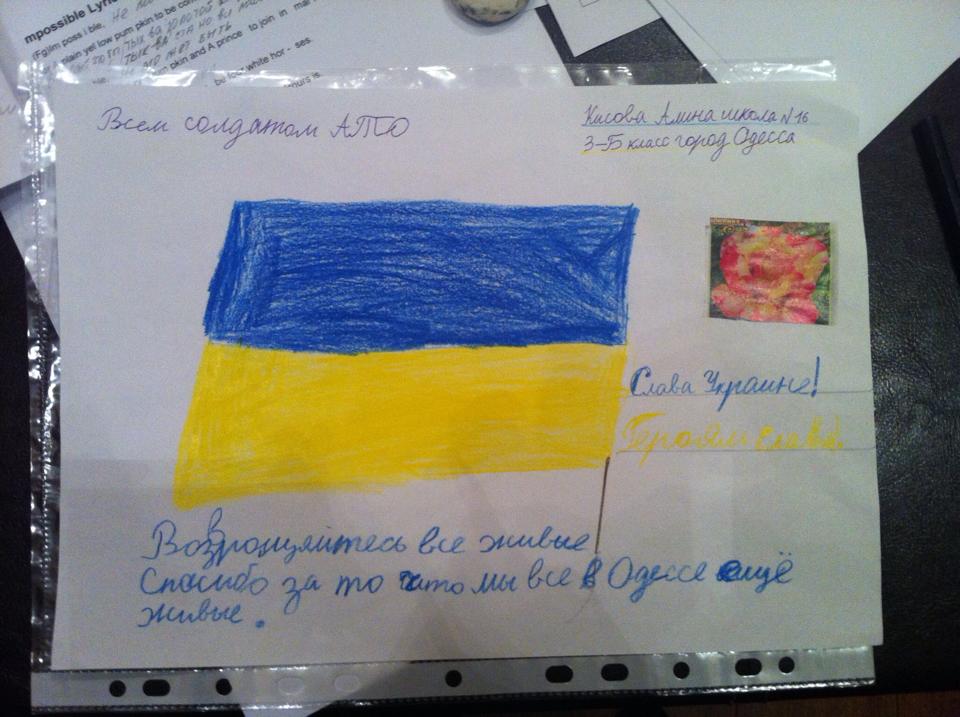 mpossible
(Fg)Im poss i ble.
plain yel low pum pkin to be com
pkin and A prince to join in mar
four white hor - ses.
Всем солдатом АТО
Кисова Алина школа N16
3-Б класс город Одесса
Слава Украине!
Героям слава!
Возврощяйтесь все живые
Спасибо за то что мы все в Одессе ещё
живые.